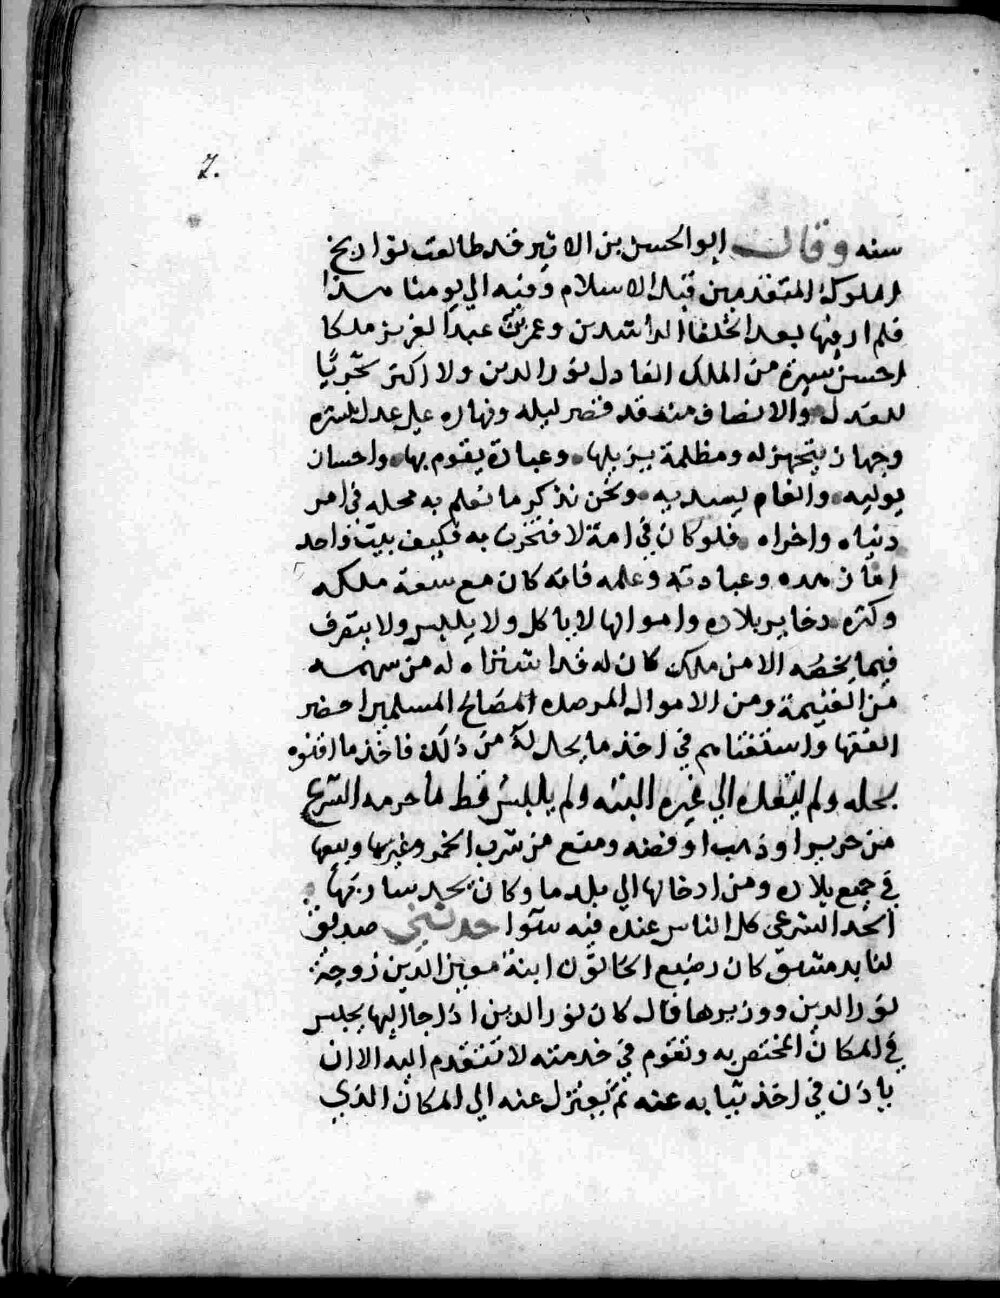 7.
سنه وقال ابو الحسن بن الاثير قد طالعت تواريخ
الملوك المتقدمين قبل الاسلام وفيه الي يومنا هذا
فلم ار فيها بعد الخلفا الراشدين وعمر بن عبد العزيز ملكا
احسن سيرة من الملك العادل نور الدين ولا اكثر تحريا
للعدل والانصاف منه قد قصر ليله ونهاره علي عدل ينشره
وجهاد يتجهز له ومظلمة يزيلها وعبادة يقوم بها واحسان
يوليه وانعام يسديه ونحن نذكر ما نعلم به محله في امر
دنياه واخراه فلو كان في امة لافتخرت به فكيف بيت واحد
اما زهده وعبادته وعلمه فانه كان مع سعة ملكه
وكثره دخاير بلاده واموالها لا ياكل ولا يلبس ولا يتصرف
فيما يخصه الا من ملك كان له قد اشتراه له من سهمه
من الغنيمة ومن الاموال المرصده لمصالح المسلمين احضر
الفقها واستفتاهم في اخذ ما يحل له من ذلك فاخذ ما افتوه
بحله ولم يتعده الي غيره البته ولم يلبس قط ما حرمه الشرع
من حرير او ذهب او فضه ومنع من شرب الخمر وغيرها وبيعها
في جميع بلاده ومن ادخالها الي بلد ما وكان يحد شاربها
الحد الشرعي كل الناس عنده فيه سوا حدثني صديق
لنا بدمشق كان رضيع الخاتون ابنة معين الدين زوجة
نور الدين ووزيرها قال كان نور الدين اذا جا اليها يجلس
في المكان المختص به وتقوم في خدمته لا تتقدم اليه الا ان
ياذن في اخذ ثيابه عنه ثم تعتزل عنه الي المكان الذي